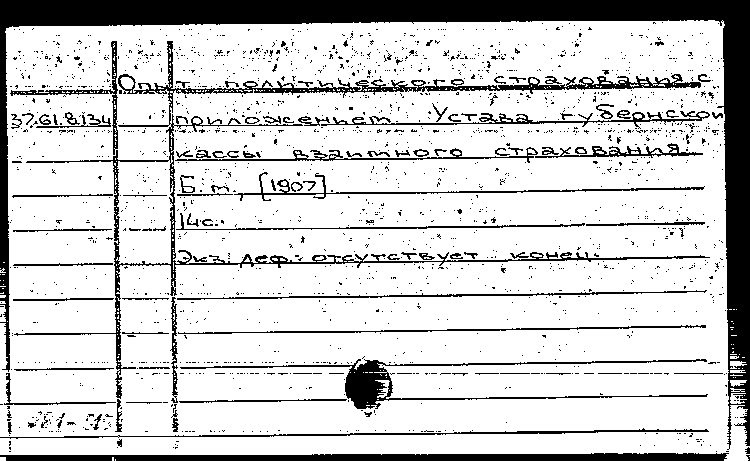 Опыт политического страхования с
37.61.8.134 приложением Устава губернской
кассы взаимного страхования.
Б.м., [1907]
14с.
Экз. деф.: отсутствует конец.